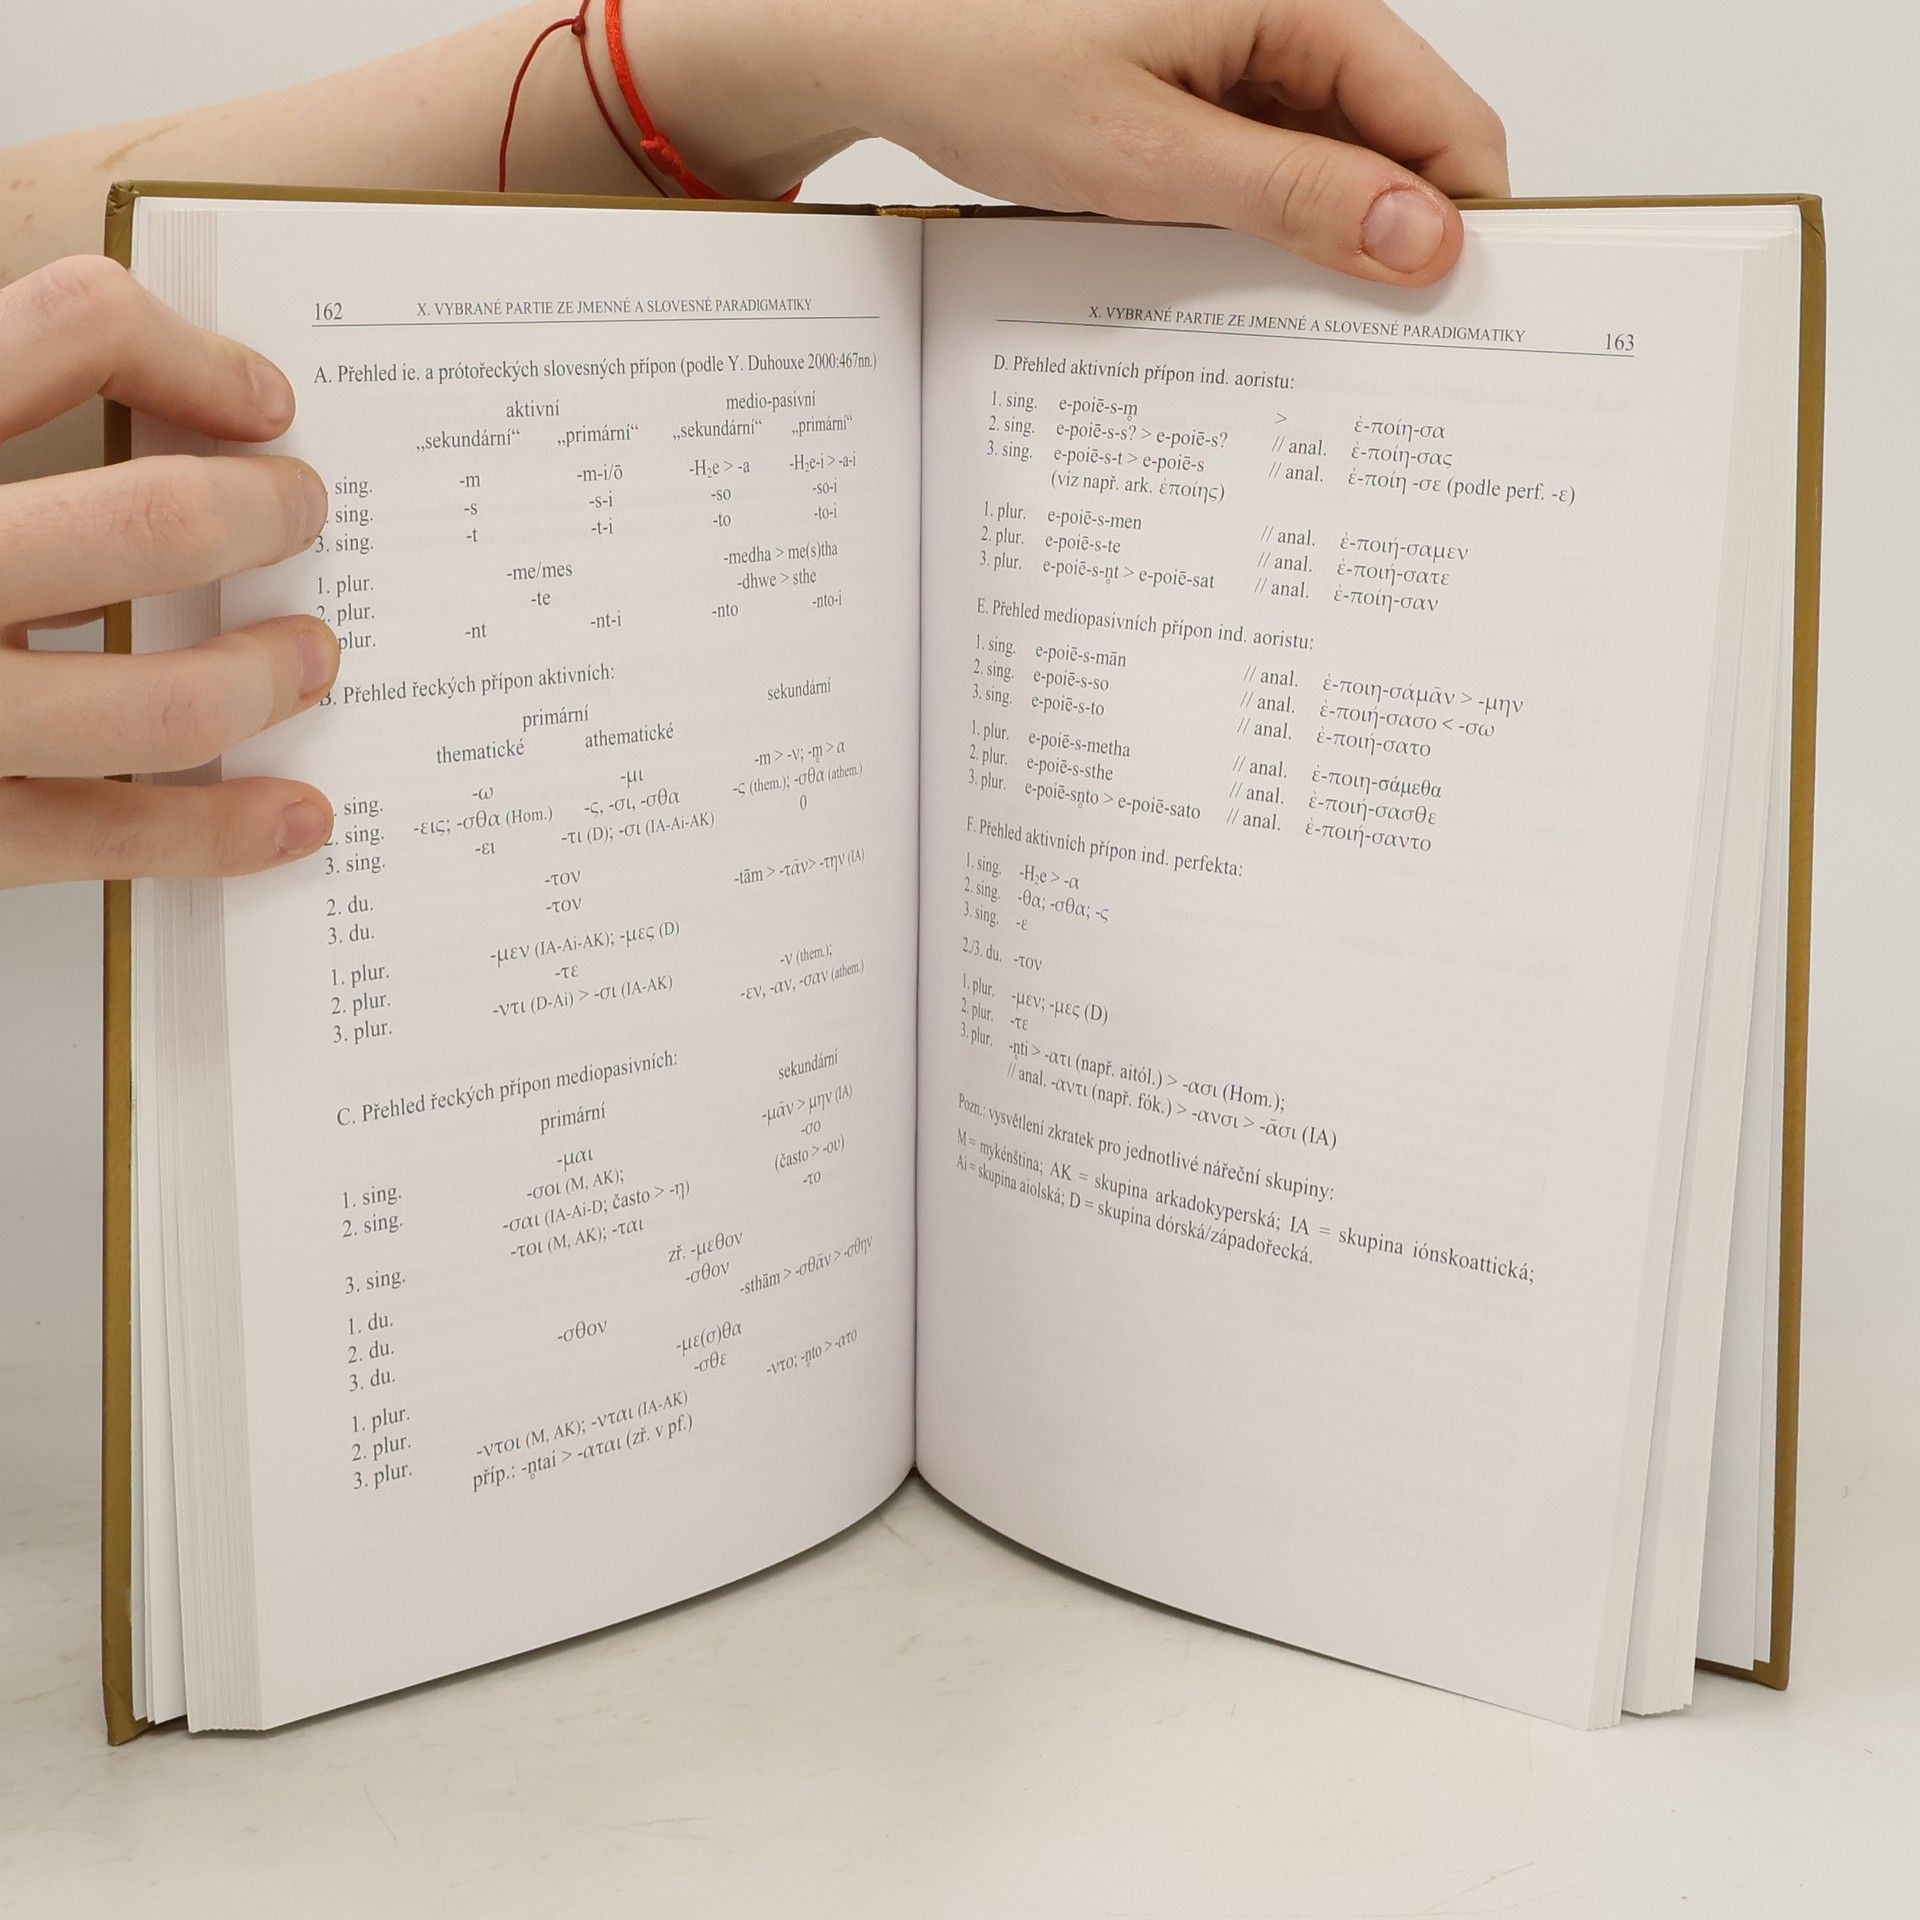 162 X. VYBRANÉ PARTIE ZE JMENNÉ A SLOVESNÉ PARADIGMATIKY
A. Přehled ie. a prótořeckých slovesných přípon (podle Y. Duhouxe 2000:467nn.)
aktivní medio-pasivní
„sekundární“ „primární“ „sekundární“ „primární“
sing. -m -m-i/ō -H₂e > -a -H₂e-i > -a-i
sing. -s -s-i -so -so-i
3. sing. -t -t-i -to -to-i
1. plur. -me/mes -medha > me(s)tha
2. plur. -te -dhwe > sthe
plur. -nt -nt-i -nto -nto-i
B. Přehled řeckých přípon aktivních:
primární sekundární
thematické athematické
sing. -ω -μι -m > -ν; -m̥ > α
2. sing. -εις; -σθα (Hom.) -ς, -σι, -σθα -ς (them.); -σθα (athem.)
3. sing. -ει -τι (D); -σι (IA-Ai-AK) 0
2. du. -τον
3. du. -τον -tām > -τᾱν > -την (IA)
1. plur. -μεν (IA-Ai-AK); -μες (D)
2. plur. -τε -ν (them.);
3. plur. -ντι (D-Ai) > -σι (IA-AK) -εν, -αν, -σαν (athem.)
C. Přehled řeckých přípon mediopasivních:
primární sekundární
1. sing. -μαι -μᾱν > μην (IA)
2. sing. -σοι (M, AK); -σο
-σαι (IA-Ai-D; často > -ῃ) (často > -ου)
3. sing. -τοι (M, AK); -ται -το
1. du. zř. -μεθον
2. du. -σθον
3. du. -σθον -sthām > -σθᾱν > -σθην
1. plur. -με(σ)θα
2. plur. -σθε
3. plur. -ντοι (M, AK); -νται (IA-AK) -ντο; -n̥to > -ατο
příp.: -n̥tai > -αται (zř. v pf.)
X. VYBRANÉ PARTIE ZE JMENNÉ A SLOVESNÉ PARADIGMATIKY 163
D. Přehled aktivních přípon ind. aoristu:
1. sing. e-poiē-s-m̥ > ἐ-ποίη-σα
2. sing. e-poiē-s-s? > e-poiē-s? // anal. ἐ-ποίη-σας
3. sing. e-poiē-s-t > e-poiē-s // anal. ἐ-ποίη -σε (podle perf. -ε)
(viz např. ark. ἐποίης)
1. plur. e-poiē-s-men // anal. ἐ-ποιή-σαμεν
2. plur. e-poiē-s-te // anal. ἐ-ποιή-σατε
3. plur. e-poiē-s-n̥t > e-poiē-sat // anal. ἐ-ποίη-σαν
E. Přehled mediopasivních přípon ind. aoristu:
1. sing. e-poiē-s-mān // anal. ἐ-ποιη-σάμᾱν > -μην
2. sing. e-poiē-s-so // anal. ἐ-ποιή-σασο < -σω
3. sing. e-poiē-s-to // anal. ἐ-ποιή-σατο
1. plur. e-poiē-s-metha // anal. ἐ-ποιη-σάμεθα
2. plur. e-poiē-s-sthe // anal. ἐ-ποιή-σασθε
3. plur. e-poiē-sn̥to > e-poiē-sato // anal. ἐ-ποιή-σαντο
F. Přehled aktivních přípon ind. perfekta:
1. sing. -H₂e > -α
2. sing. -θα; -σθα; -ς
3. sing. -ε
2./3. du. -τον
1. plur. -μεν; -μες (D)
2. plur. -τε
3. plur. -n̥ti > -ατι (např. aitól.) > -ασι (Hom.);
// anal. -αντι (např. fók.) > -ανσι > -ᾱσι (IA)
Pozn.: vysvětlení zkratek pro jednotlivé nářeční skupiny:
M = mykénština; AK = skupina arkadokyperská; IA = skupina iónskoattická;
Ai = skupina aiolská; D = skupina dórská/západořecká.